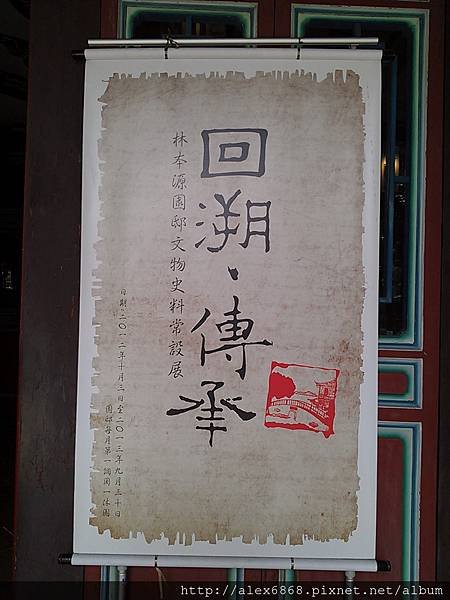 回溯、傳承
林本源園邸文物史料常設展
日期:二〇一二年十月三日至二〇一三年九月三十日
園邸每月第一週周一休園
http://alex6868.pixnet.net/album